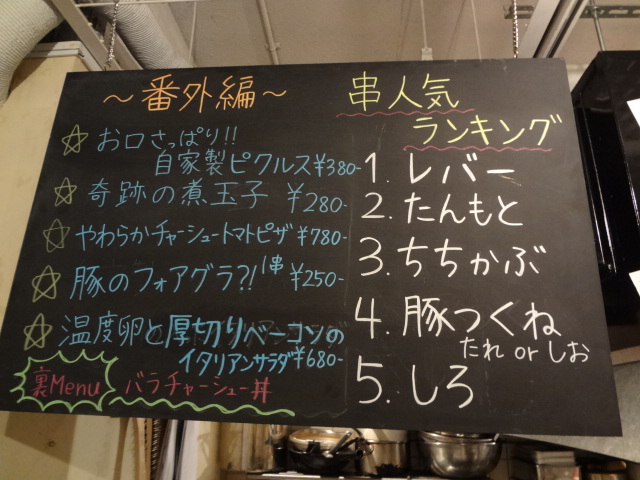 ～番外編～
☆お口さっぱり!!
自家製ピクルス ¥380-
☆奇跡の煮玉子 ¥280-
☆やわらかチャーシュートマトピザ ¥780-
☆豚のフォアグラ?! 1串 ¥250-
☆温度卵と厚切りベーコンの
イタリアンサラダ ¥680-
裏Menu バラチャーシュー丼
串人気
ランキング
1. レバー
2. たんもと
3. ちちかぶ
4. 豚つくね
たれ or しお
5. しろ